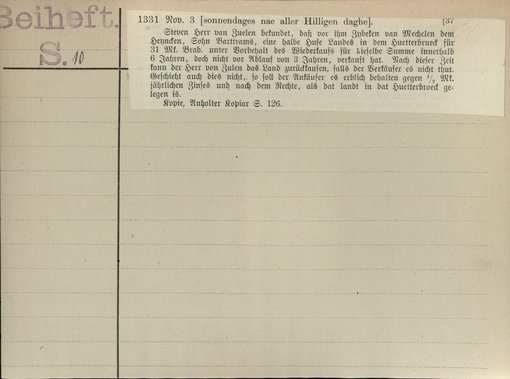 Beiheft.
S. 10
1331 Nov. 3 [sonnendages nae aller Hilligen daghe]. [37
Steven Herr van Zuelen bekundet, daß vor ihm Zybeken van Mechelen dem
Heyncken, Sohn Bartrams, eine halbe Hufe Landes in dem Huetterbruck für
31 Mk. Brab. unter Vorbehalt des Wiederkaufs für dieselbe Summe innerhalb
6 Jahren, doch nicht vor Ablauf von 3 Jahren, verkauft hat. Nach dieser Zeit
kann der Herr von Zulen das Land zurückkaufen, falls der Verkäufer es nicht thut.
Geschieht auch dies nicht, so soll der Ankäufer es erblich behalten gegen 1/2 Mk.
jährlichen Zinses und nach dem Rechte, als dat landt in dat Huetterbroeck ge-
legen is.
Kopie, Anholter Kopiar S. 126.